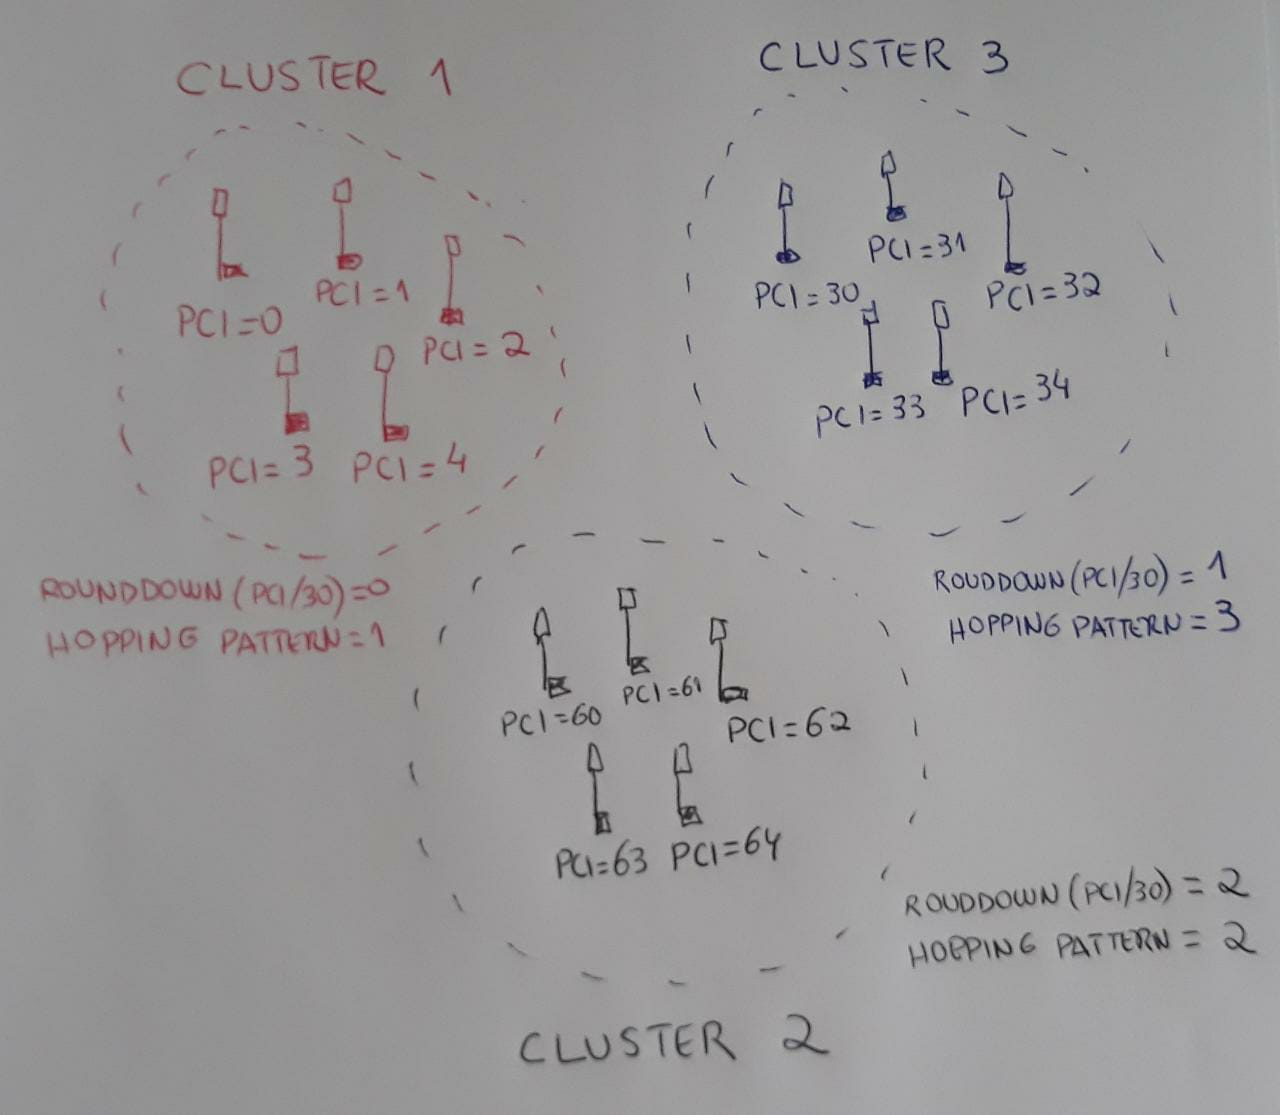 CLUSTER 1
PCI=0
PCI=1
PCI=2
PCI=3
PCI=4
ROUNDDOWN(PCI/30)=0
HOPPING PATTERN=1
CLUSTER 3
PCI=30
PCI=31
PCI=32
PCI=33
PCI=34
ROUDDOWN(PCI/30)=1
HOPPING PATTERN=3
PCI=60
PCI=61
PCI=62
PCI=63
PCI=64
ROUDDOWN(PCI/30)=2
HOPPING PATTERN=2
CLUSTER 2